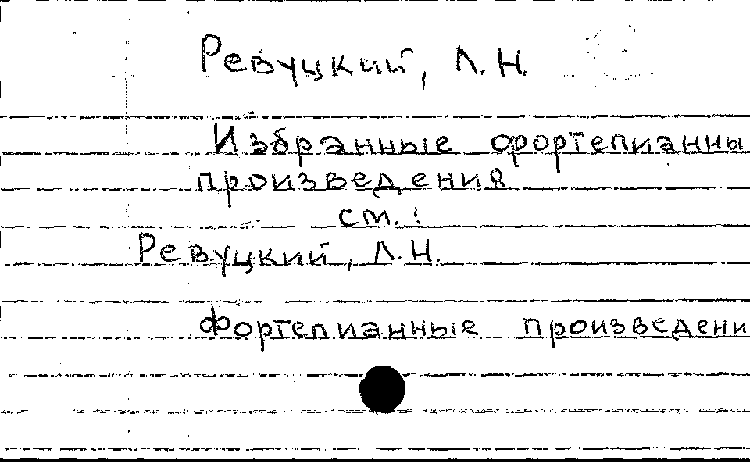 Ревуцкий, Л.Н.
Избранные фортепианны
произведения
см.:
Ревуцкий, Л.Н.
Фортепианные произведени